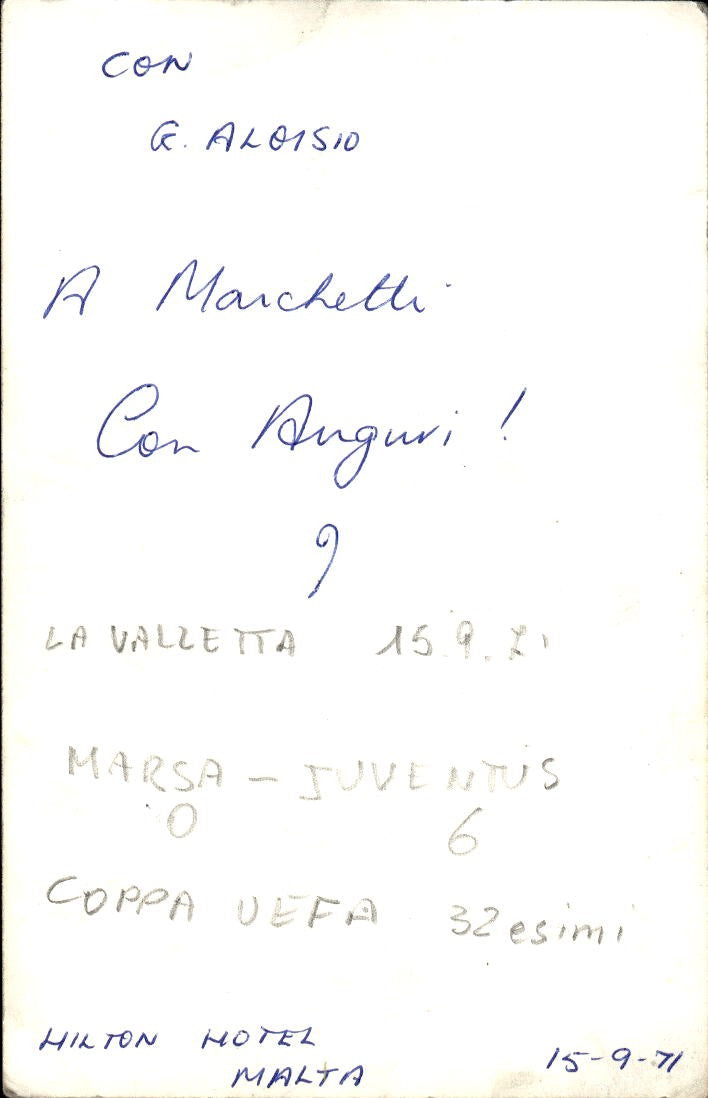 CON
G. ALOISIO
A Marchetti
Con Auguri !
LA VALLETTA 15.9.71
MARSA - JUVENTUS
0 6
COPPA UEFA 32esimi
HILTON HOTEL
MALTA 15-9-71